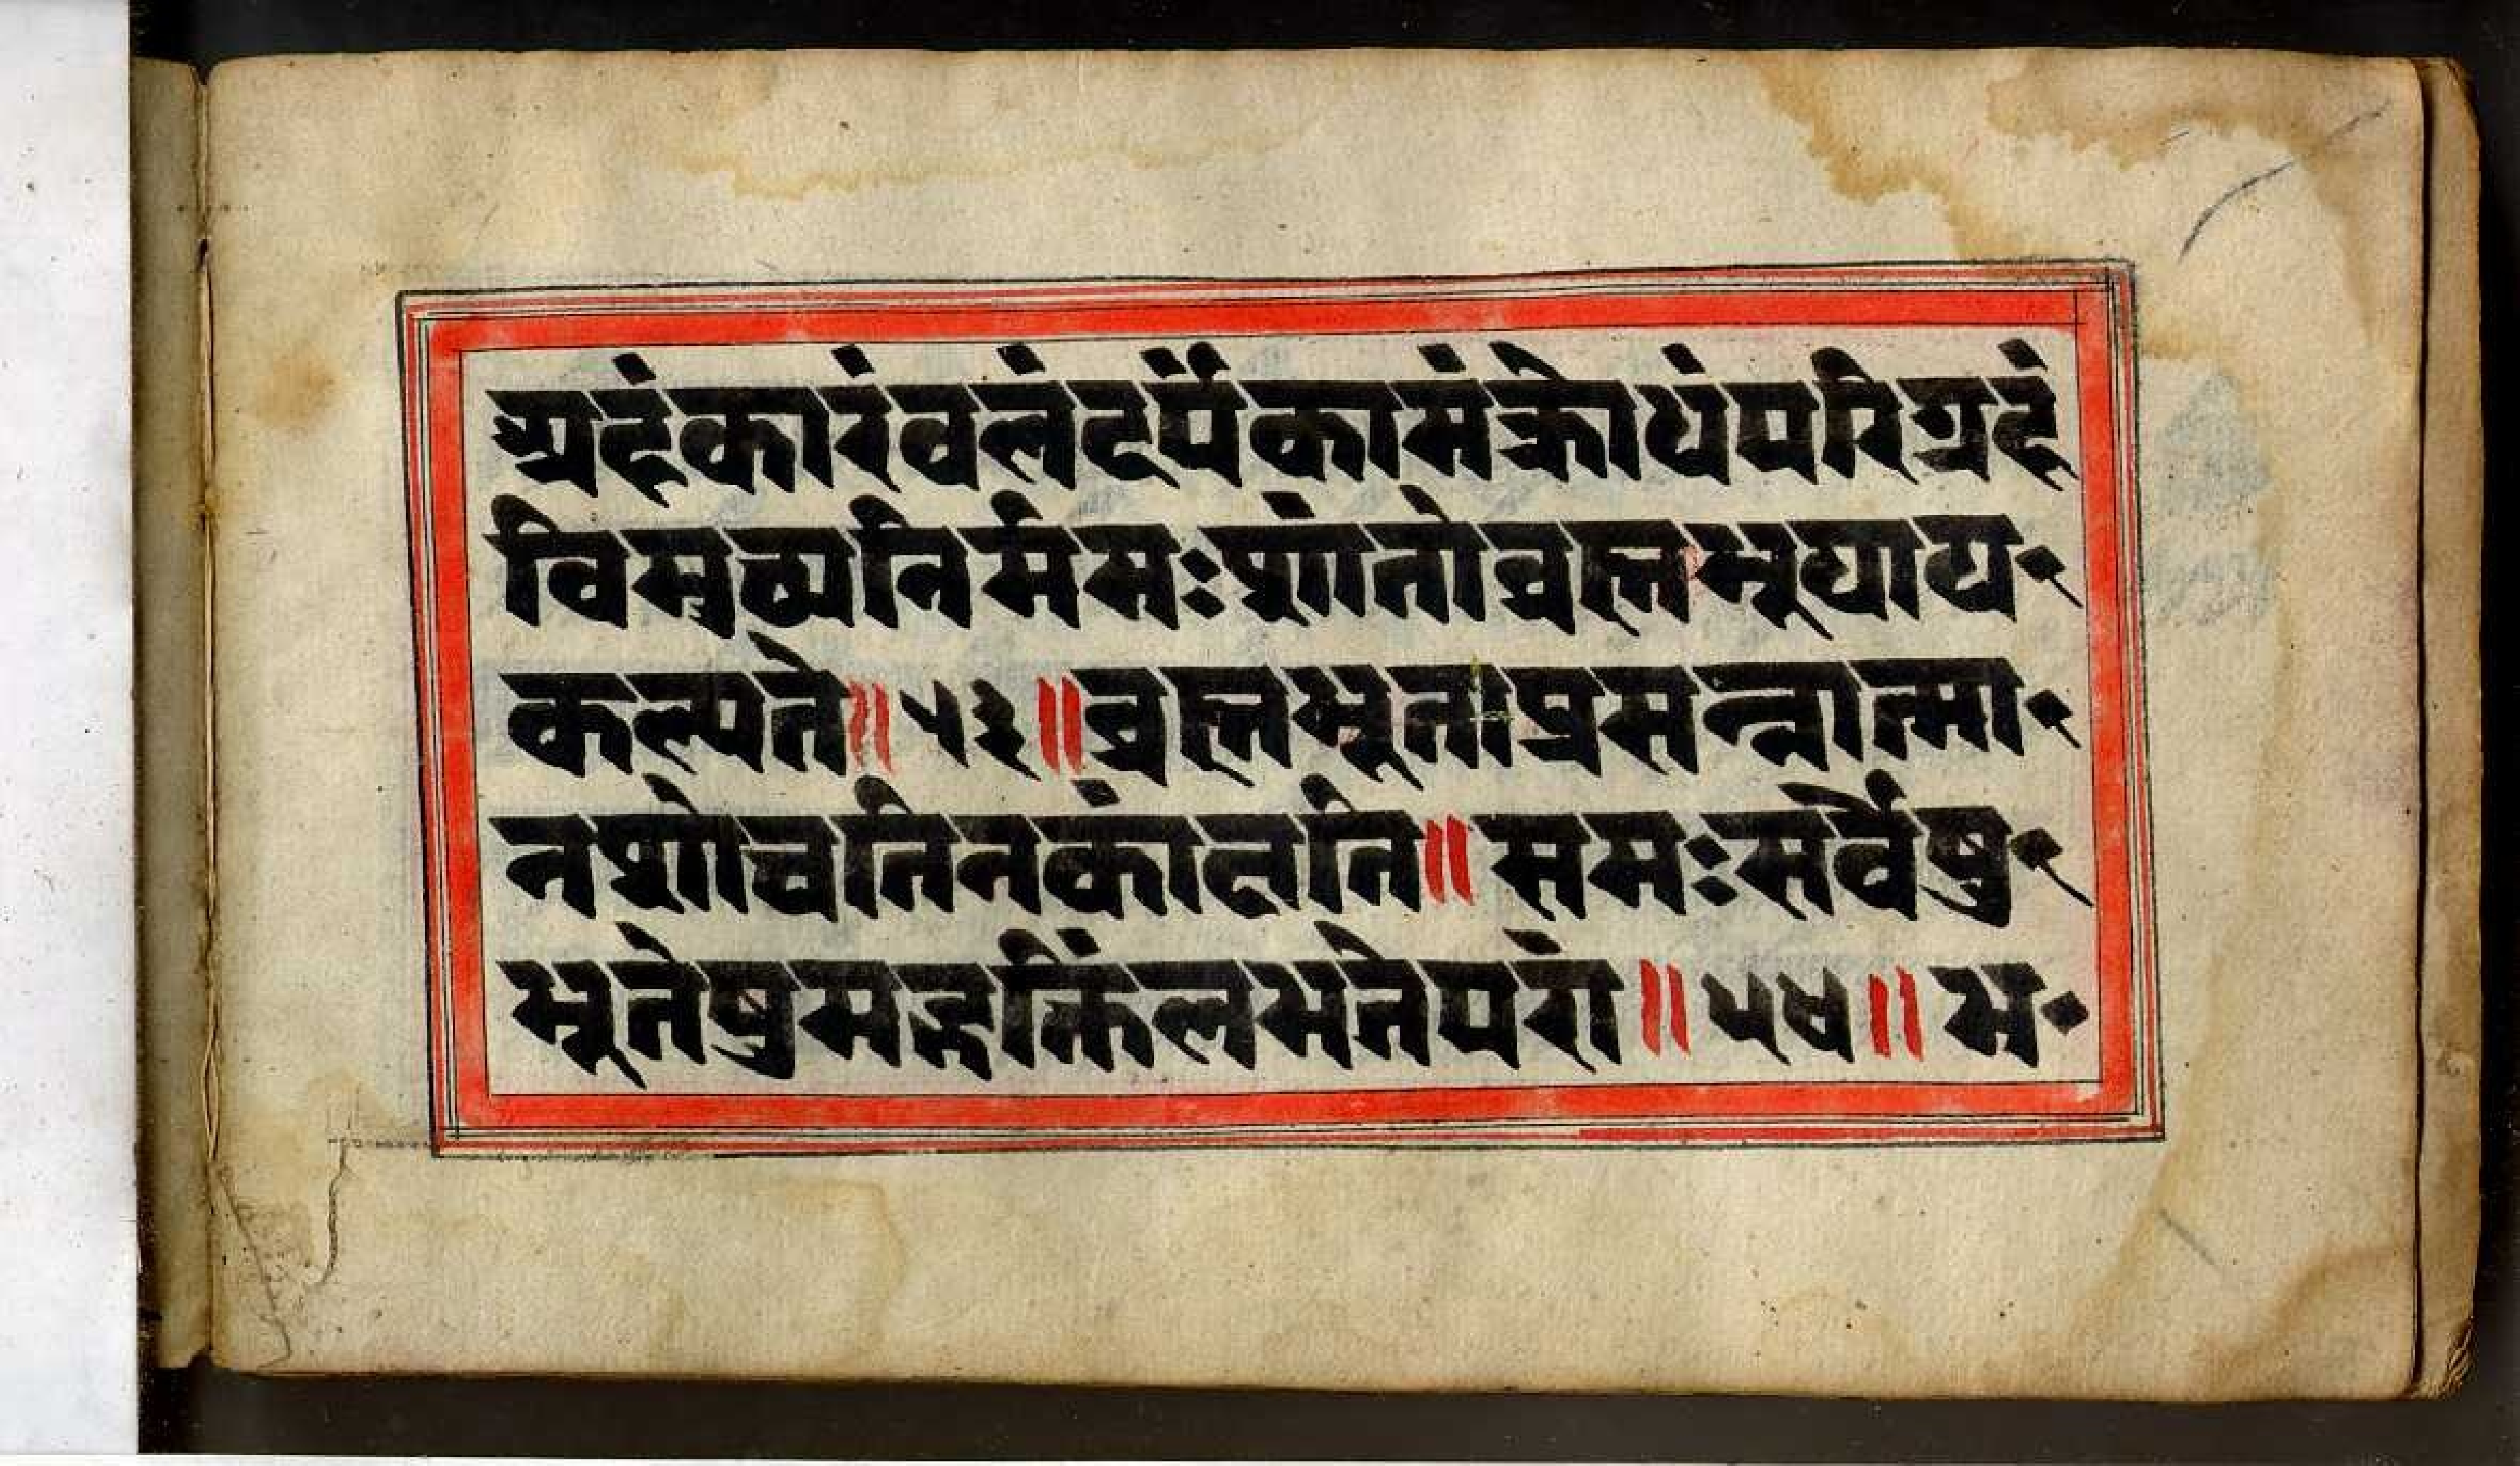 अहंकारंवलंदर्पंकामंक्रोधंपरिग्रहं
विमुच्यनिर्ममःशांतोव्रह्मभूयाय
कल्पते॥५३॥व्रह्मभूताप्रसन्नात्मा
नशोचतिनकांक्षति॥समःसर्वेषु
भूतेषुमद्भक्तिंलभतेपरां॥५४॥भ